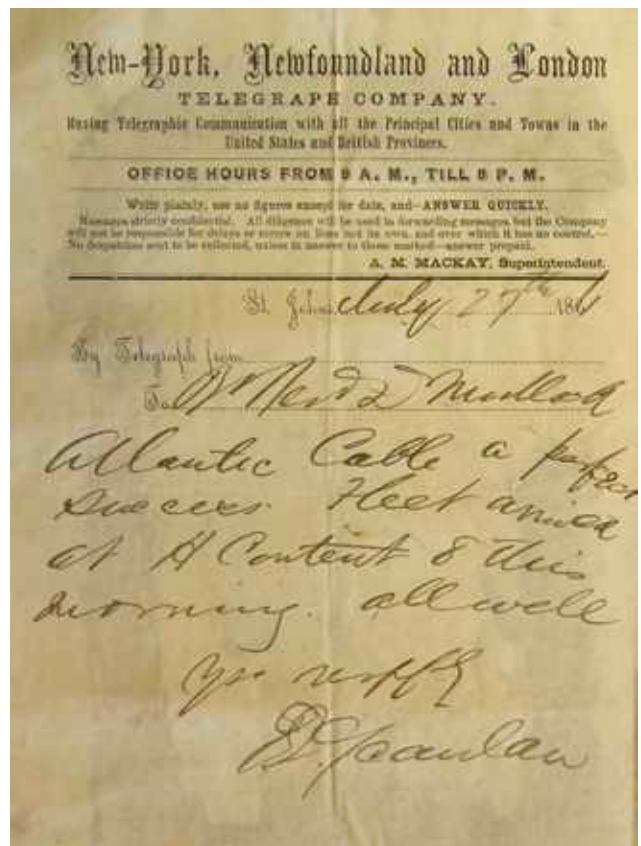 New-York, Newfoundland and London
TELEGRAPH COMPANY.
Having Telegraphic Communication with all the Principal Cities and Towns in the
United States and British Provinces.
OFFICE HOURS FROM 8 A. M., TILL 8 P. M.
Write plainly, use no figures except for date, and—ANSWER QUICKLY.
Messages strictly confidential. All diligence will be used in forwarding messages, but the Company
will not be responsible for delays or errors on lines not its own, and over which it has no control.—
No despatches sent to be collected, unless in answer to those marked—answer prepaid.
A. M. MACKAY, Superintendent.
St. John's July 27th 186
By Telegraph from
To Mullock
Atlantic Cable a perfect
success. Fleet arrived
at H Content 8 this
morning. all well